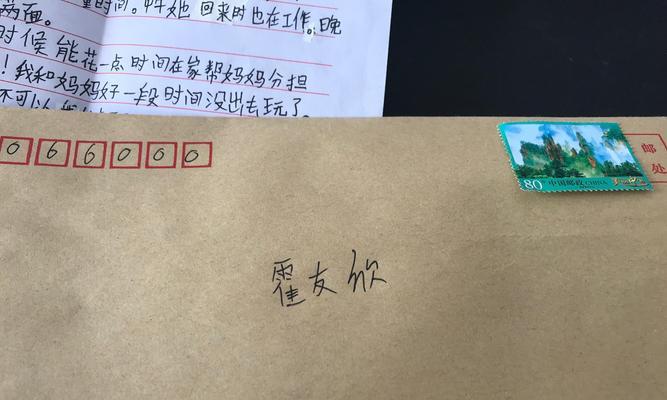 两面。 量时间。 她回来时也在工作。晚
时候能花一点时间在家帮妈妈分担
！我和妈妈好一段时间没出去玩了。
不可以
066000
80 中国邮政 CHINA
邮
处
霍友欣